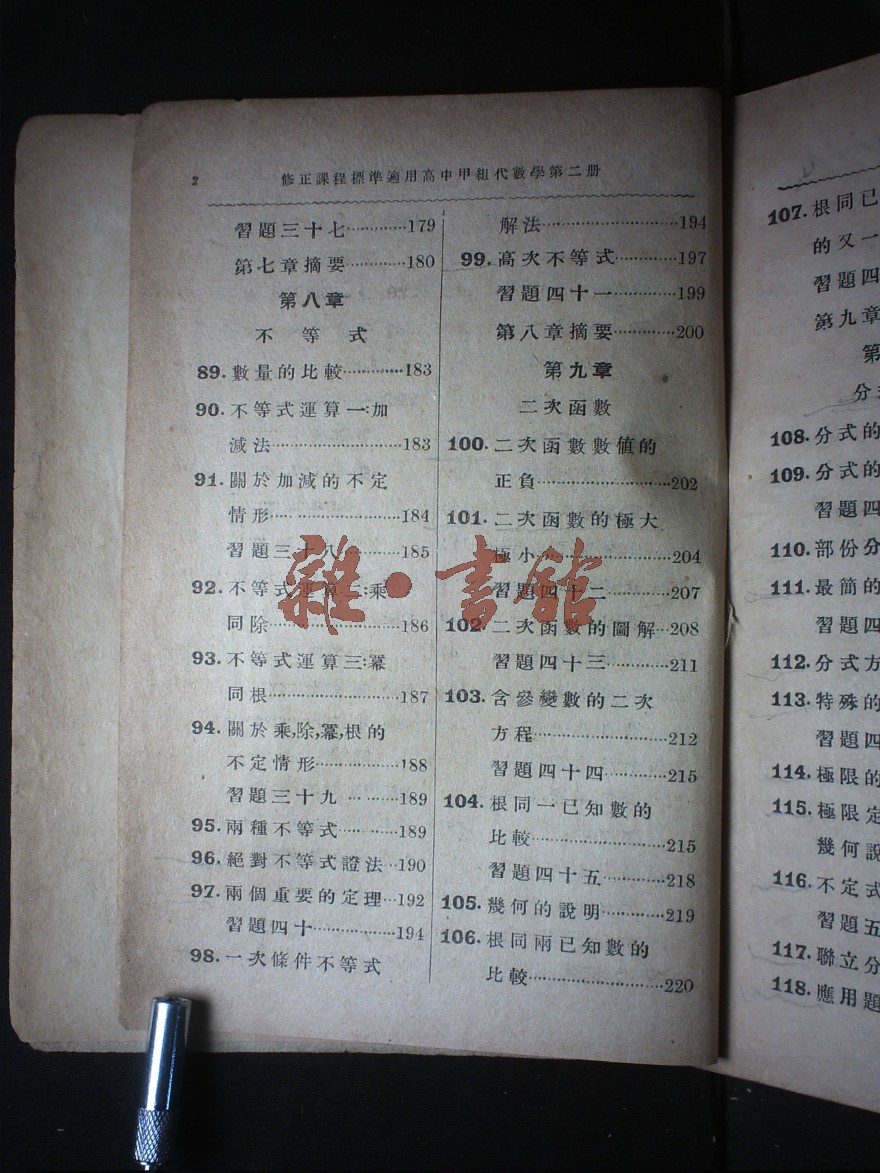 2 修正課程標準適用高中甲組代數學第二册
習題三十七············179
第七章摘要············180
第八章
不等式
89.數量的比較············183
90.不等式運算一:加
減法························183
91.關於加減的不定
情形························184
習題三十八············185
92.不等式運算二:乘
同除························186
93.不等式運算三:冪
同根························187
94.關於乘,除,冪,根的
不定情形···············188
習題三十九············189
95.兩種不等式············189
96.絕對不等式證法···190
97.兩個重要的定理···192
習題四十···············194
98.一次條件不等式
解法························194
99.高次不等式············197
習題四十一············199
第八章摘要············200
第九章
二次函數
100.二次函數數值的
正負························202
101.二次函數的極大
極小························204
習題四十二············207
102.二次函數的圖解···208
習題四十三············211
103.含參變數的二次
方程························212
習題四十四············215
104.根同一已知數的
比較························215
習題四十五············218
105.幾何的說明············219
106.根同兩已知數的
比較························220
雜·書館
107.根同已
的又一
習題四
第九章
第
分式
108.分式的
109.分式的
習題四
110.部份分
111.最簡的
習題四
112.分式方
113.特殊的
習題四
114.極限的
115.極限定
幾何說
116.不定式
習題五
117.聯立分
118.應用題